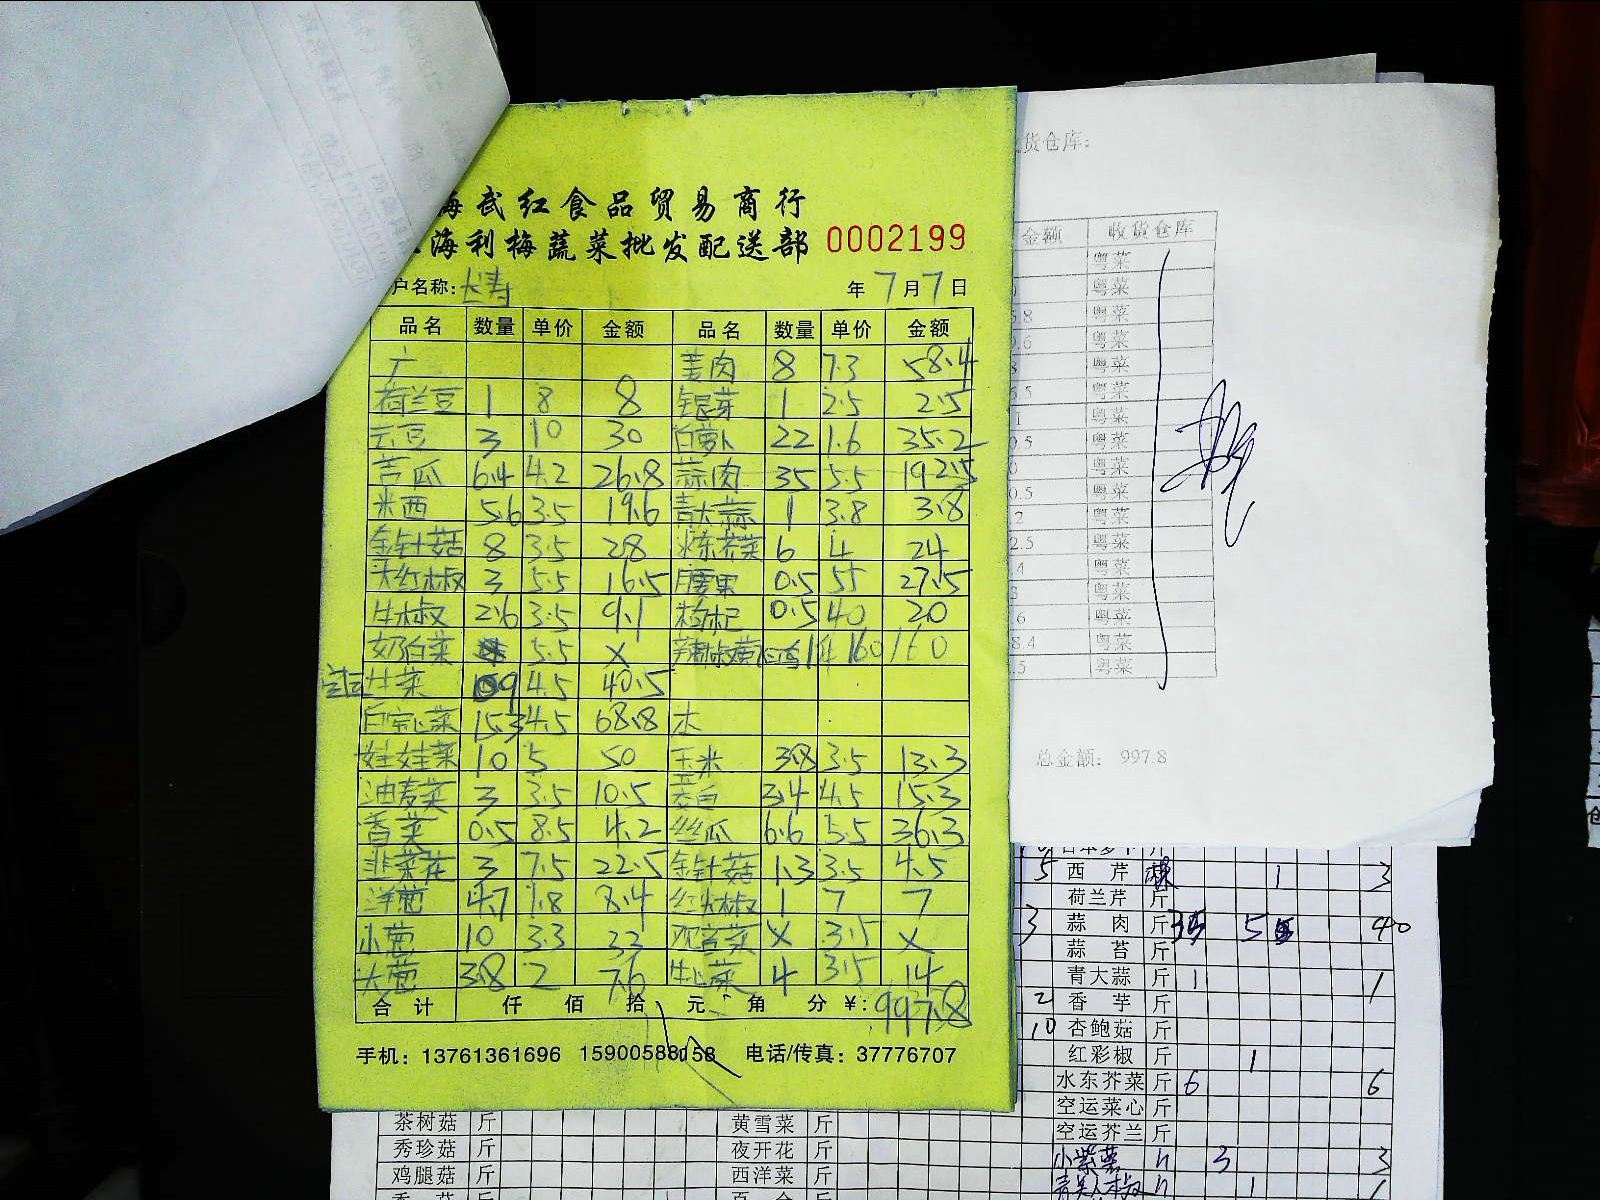 海武红食品贸易商行
海利梅蔬菜批发配送部 0002199
户名称: 长寿 年 7 月 7 日
品名 数量 单价 金额 品名 数量 单价 金额
广 姜肉 8 7.3 58.4
荷兰豆 1 8 8 银芽 1 2.5 2.5
云豆 3 10 30 白萝卜 22 1.6 35.2
苦瓜 6.4 4.2 26.8 蒜肉 35 5.5 192.5
米西 5.6 3.5 19.6 青大蒜 1 3.8 3.8
金针菇 8 3.5 28 水东芥菜 6 4 24
大红椒 3 5.5 16.5 腰果 0.5 55 27.5
牛椒 2.6 3.5 9.1 枸杞 0.5 40 20
奶白菜 5.5 × 辣椒黄 14 160 160
生菜 9 4.5 40.5
白菜 15.3 4.5 68.8 木
娃娃菜 10 5 50 玉米 3.8 3.5 13.3
油麦菜 3 3.5 10.5 茭白 3.4 4.5 15.3
香菜 0.5 8.5 4.2 丝瓜 6.6 5.5 36.3
韭菜花 3 7.5 22.5 金针菇 1.3 3.5 4.5
洋葱 4.7 1.8 8.4 红尖椒 1 7 7
小葱 10 3.3 33 观音菜 × 3.5 ×
大葱 3.8 2 7.6 生菜 4 3.5 14
合计 仟 佰 拾 元 角 分 ¥: 997.8
手机: 13761361696 15900588058 电话/传真: 37776707
货仓库:
金额 收货仓库
粤菜
粤菜
5.8 粤菜
粤菜
粤菜
粤菜
粤菜
粤菜
粤菜
0.5 粤菜
粤菜
2.5 粤菜
粤菜
粤菜
粤菜
8.4 粤菜
粤菜
总金额: 997.8
5 西芹 1 3
荷兰芹 斤
3 蒜肉 斤 35 40
蒜苔 斤
青大蒜 斤 1 1
2 香芋 斤
10 杏鲍菇 斤
红彩椒 斤 1
水东芥菜 斤 6 6
空运菜心 斤
空运芥兰 斤
3 3
1 1
茶树菇 斤 黄雪菜 斤
秀珍菇 斤 夜开花 斤
鸡腿菇 斤 西洋菜 斤